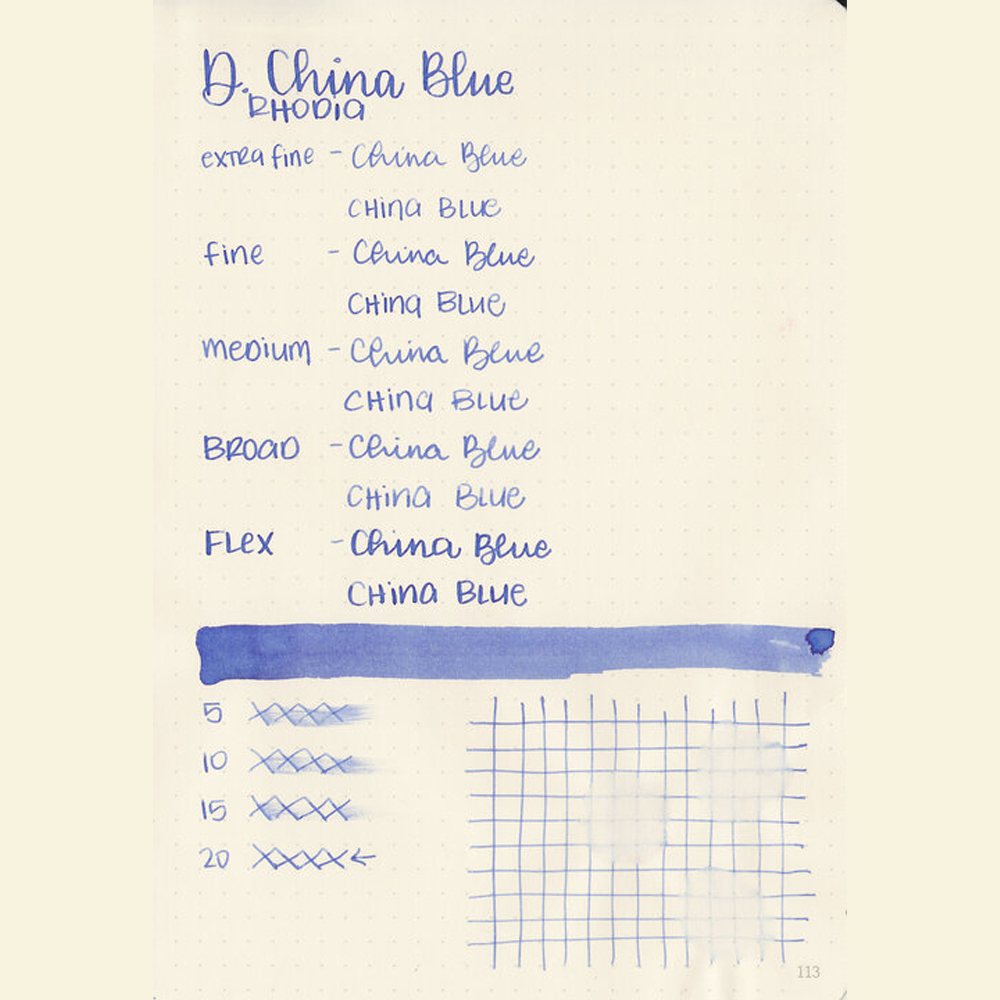 D. China Blue
RHODIA
extra fine - China Blue
CHina BLUE
fine - China Blue
CHina BLUE
meDium - China Blue
CHina BLUE
BROaD - China Blue
CHina BLUE
FLex - China Blue
CHina BLUE
5 XXXX
10 XXXX
15 XXXX
20 XXXX←
113